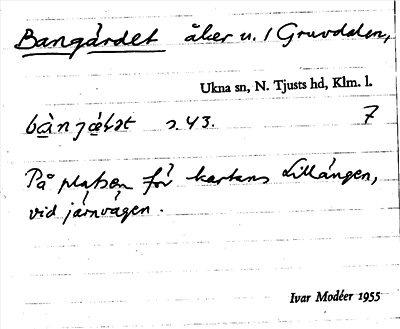 Bangärdet åker u. / Gruvdalen,
Ukna sn, N. Tjusts hd, Klm. l.
s. 43. 7
På platsen för kartans Lillängen,
vid järnvägen.
Ivar Modéer 1955